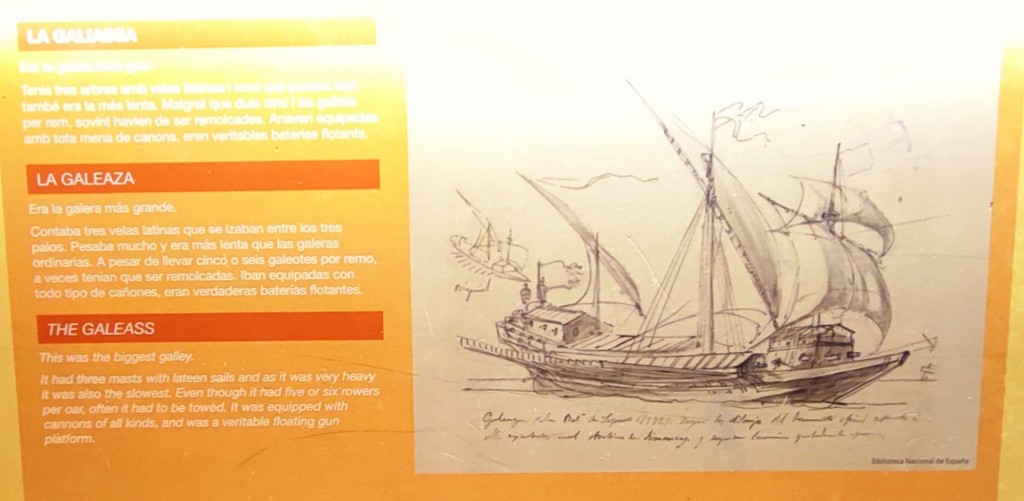 LA GALIASSA
Era la galera més gran.
Tenia tres arbres amb veles llatines i
també era la més lenta. Malgrat que duia cinc i sis galiots
per rem, sovint havien de ser remolcades. Anaven equipades
amb tota mena de canons, eren veritables bateries flotants.
LA GALEAZA
Era la galera más grande.
Contaba tres velas latinas que se izaban entre los tres
palos. Pesaba mucho y era más lenta que las galeras
ordinarias. A pesar de llevar cinco o seis galeotes por remo,
a veces tenían que ser remolcadas. Iban equipadas con
todo tipo de cañones, eran verdaderas baterías flotantes.
THE GALEASS
This was the biggest galley.
It had three masts with lateen sails and as it was very heavy
it was also the slowest. Even though it had five or six rowers
per oar, often it had to be towed. It was equipped with
cannons of all kinds, and was a veritable floating gun
platform.
Biblioteca Nacional de España